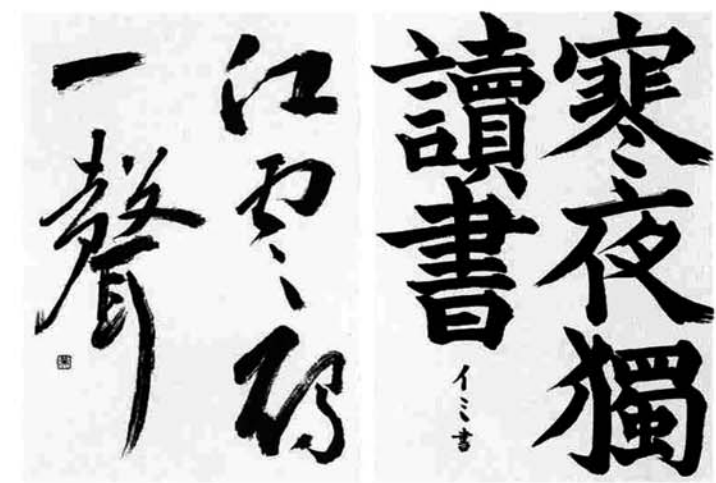 寒夜獨
讀書
イミ書
江雲鴈
一聲